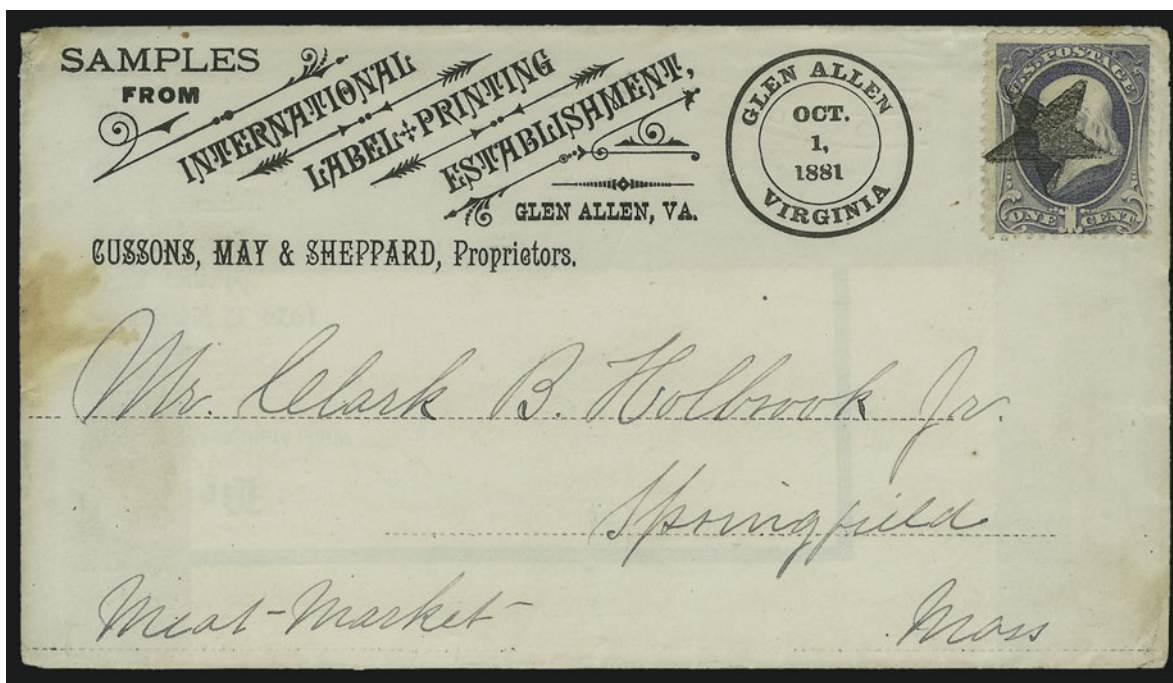 SAMPLES
FROM
INTERNATIONAL
LABEL + PRINTING
ESTABLISHMENT,
GLEN ALLEN, VA.
CUSSONS, MAY & SHEPPARD, Proprietors.
GLEN ALLEN
OCT.
1,
1881
VIRGINIA
U.S. POSTAGE
ONE 1 CENT
Mr. Clark B. Holbrook Jr.
Springfield
Meat-Market
Mass